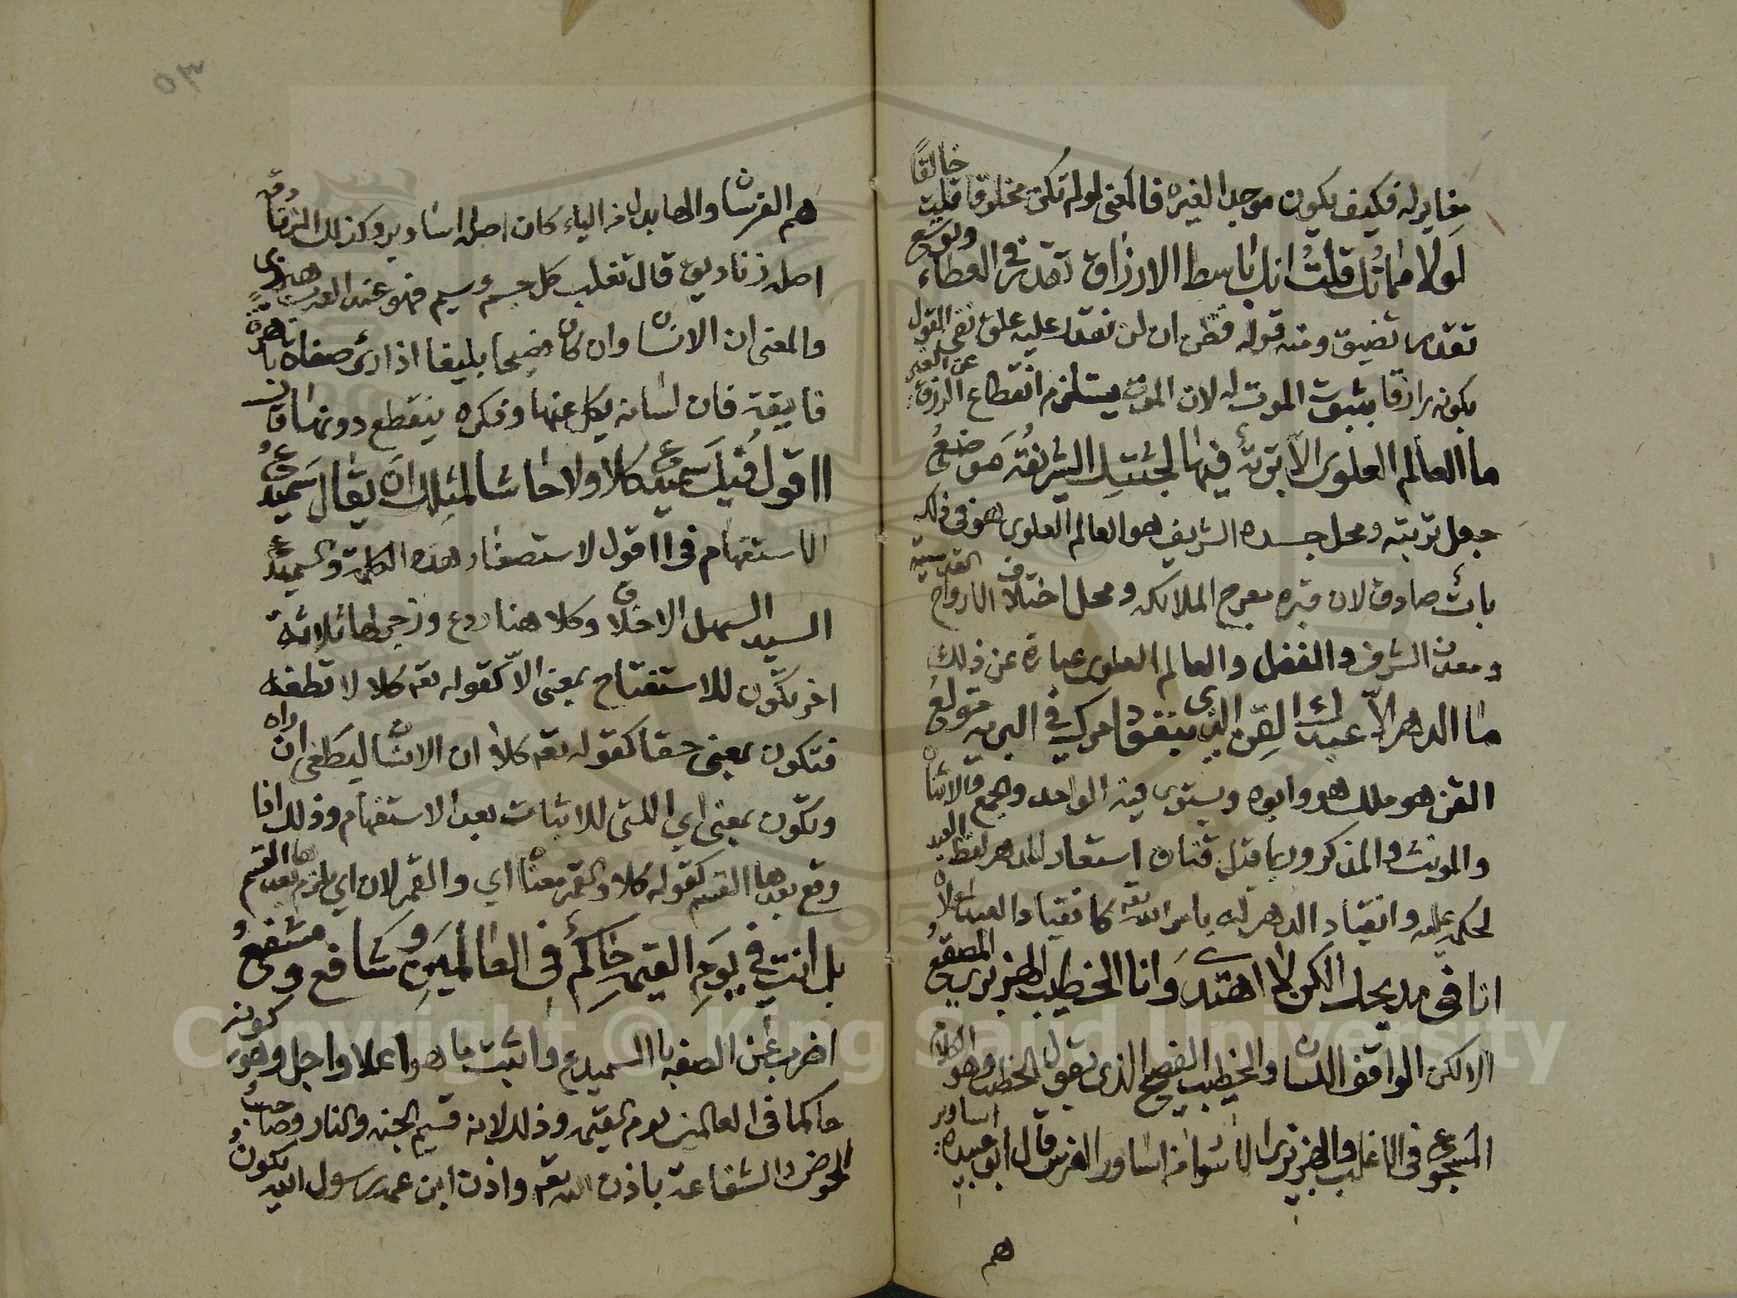 مغايرله فكيف يكون موجد الغيره فالمعنى لو لم تكن مخلوقا قلت خالقا
لولا مماتك قلت انك باسط الارزاق تقدر في العطاء وتوسع
تقدر تضيق ومنه قوله فظن ان لن نقدر عليه علق نفي القول
بكونه رازقا بثبوت الموت له لان الموت يستلزم انقطاع الرزق عن الغير
ما العالم العلوي الا تربة فيها لجثتك الشريفة موضع
جعل تربته ومحل جسده الشريف هو العالم العلوي وهو في ذلك
بات صادق لان قبره معرج الملائكه ومحل اختلاف الارواح القدسية
ومعدن الشرف والفضل والعالم العلوي عبارة عن ذلك
ما الدهر الا عبدك القن الذي بنفوذ امرك في البرية مولع
القن هو ملك هو وابوه ويستوي فيه الواحد والجمع والاثنان
والمونث والمذكر وربما قيل قنان استعار للدهر لفظ العبد
لحكمه عليه وانقياد الدهر له بامر الله تعه كانقياد العبد لمولاه
انا في مديحك الكن لا اهتدي وانا الخطيب الهزبري المصقع
الالكن الواقف اللسان والخطيب الفصيح الذي يقول الخطب وهو الكلام
المسجوع في الاغلب والهزبري الاسوار من اساورة الفرس قال ابو عبيده اساور
هم
هم الفرسان والها بدل من الياء كان اصله اساوير وكذلك الزنادقه
اصله زناديق قال ثعلب كل جسم وسيم فهو عند العرب هبزي
والمعنى ان الانسان وان كان فصيحا بليغا اذا راى صفات باهرة
فايقة فان لسانه يكل عنها وفكره ينقطع دونها قال
ااقول فيك سميدع كلا ولا حاشا لمثلك ان يقال سميدع
الاستفهام في ااقول لاستصغار هذه الكلمة والسميدع
السيد السهل الاخلاق وكلا هنا ردع وزجر ولها ثلاثة
اخر تكون للاستفتاح بمعنى الا كقوله تعه كلا لا تطعه
فتكون بمعنى حقا كقوله تعه كلا ان الانسان ليطغى ان راه
وتكون بمعنى اي اللتي للاثبات بعد الاستفهام وذلك اذا
وقع بعدها القسم كقوله كلا والقمر معناه اي والقمر لان اي يلزم بعدها القسم
بل انت في يوم القيمة حاكم في العالمين وشافع ومشفع
اضرب عن الصفة بالسميدع واثبت ما هو اعلا واجل وهو كونه
حاكما في العالمين يوم القيمه وذلك لانه قسيم الجنه والنار وصاحب
الحوض والشفاعة باذن الله تعه واذن ابن عمه رسول الله يكون